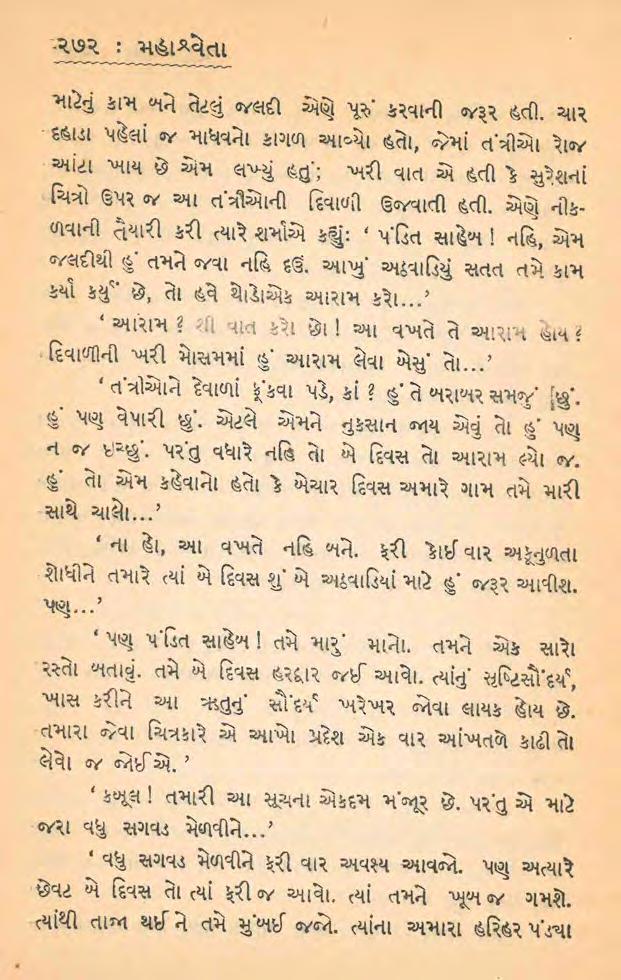 ૨૭૨ : મહાશ્વેતા
માટેનું કામ બને તેટલું જલદી એણે પૂરું કરવાની જરૂર હતી. ચાર
દહાડા પહેલાં જ માધવનો કાગળ આવ્યો હતો, જેમાં તંત્રીઓ રોજ
આંટા ખાય છે એમ લખ્યું હતું; ખરી વાત એ હતી કે સુરેશનાં
ચિત્રો ઉપર જ આ તંત્રીઓની દિવાળી ઉજવાતી હતી. એણે નીક-
ળવાની તૈયારી કરી ત્યારે શર્માએ કહ્યું: ‘ પંડિત સાહેબ ! નહિ, એમ
જલદીથી હું તમને જવા નહિ દઉં. આખું અઠવાડિયું સતત તમે કામ
કર્યા કર્યું છે, તો હવે થોડોએક આરામ કરો...’
‘ આરામ ? શી વાત કરો છો ! આ વખતે તે આરામ હોય ?
દિવાળીની ખરી મોસમમાં હું આરામ લેવા બેસું તો...’
‘ તંત્રીઓને દેવાળાં ફૂંકવા પડે, કાં ? હું તે બરાબર સમજું છું.
હું પણ વેપારી છું. એટલે એમને નુકસાન જાય એવું તો હું પણ
ન જ ઇચ્છું. પરંતુ વધારે નહિ તો બે દિવસ તો આરામ લ્યો જ.
હું તો એમ કહેવાનો હતો કે બેચાર દિવસ અમારે ગામ તમે મારી
સાથે ચાલો...’
‘ ના હો, આ વખતે નહિ બને. ફરી કોઈ વાર અકૂનુળતા
શોધીને તમારે ત્યાં બે દિવસ શું બે અઠવાડિયાં માટે હું જરૂર આવીશ.
પણ...’
‘ પણ પંડિત સાહેબ ! તમે મારું માનો. તમને એક સારો
રસ્તો બતાવું. તમે બે દિવસ હરદ્વાર જઈ આવો. ત્યાંનું સૃષ્ટિસૌંદર્ય,
ખાસ કરીને આ ઋતુનું સૌંદર્ય ખરેખર જોવા લાયક હોય છે.
તમારા જેવા ચિત્રકારે એ આખો પ્રદેશ એક વાર આંખતળે કાઢી તો
લેવો જ જોઈએ. ’
‘ કબૂલ ! તમારી આ સૂચના એકદમ મંજૂર છે. પરંતુ એ માટે
જરા વધુ સગવડ મેળવીને...’
‘ વધુ સગવડ મેળવીને ફરી વાર અવશ્ય આવજો. પણ અત્યારે
છેવટ બે દિવસ તો ત્યાં ફરી જ આવો. ત્યાં તમને ખૂબ જ ગમશે.
ત્યાંથી તાજા થઈ ને તમે મુંબઈ જજો. ત્યાંના અમારા હરિહર પંડ્યા